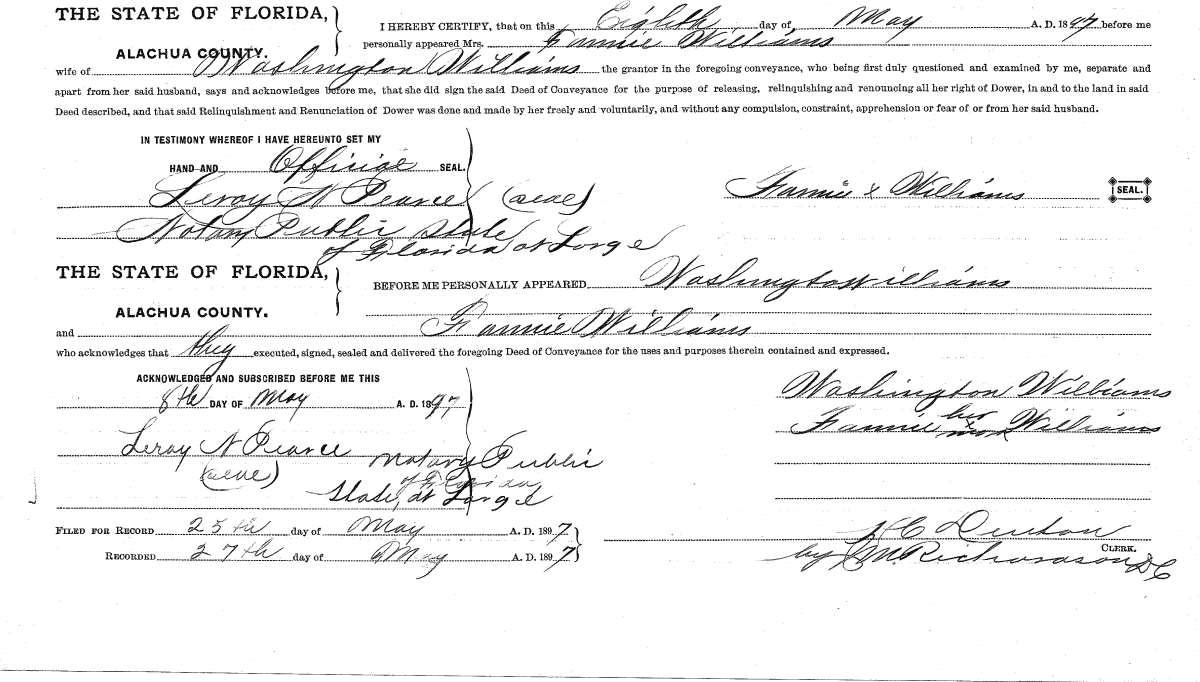 THE STATE OF FLORIDA,
ALACHUA COUNTY.
I HEREBY CERTIFY, that on this Eighth day of May A. D. 1897 before me
personally appeared Mrs. Fannie Williams
wife of Washington Williams the grantor in the foregoing conveyance, who being first duly questioned and examined by me, separate and
apart from her said husband, says and acknowledges before me, that she did sign the said Deed of Conveyance for the purpose of releasing, relinquishing and renouncing all her right of Dower, in and to the land in said
Deed described, and that said Relinquishment and Renunciation of Dower was done and made by her freely and voluntarily, and without any compulsion, constraint, apprehension or fear of or from her said husband.
IN TESTIMONY WHEREOF I HAVE HEREUNTO SET MY
HAND AND Official SEAL.
Leroy N Pearce (seal)
Fannie x Williams SEAL.
Notary Public State
of Florida at Large
THE STATE OF FLORIDA,
ALACHUA COUNTY.
BEFORE ME PERSONALLY APPEARED Washington Williams
and Fannie Williams
who acknowledges that they executed, signed, sealed and delivered the foregoing Deed of Conveyance for the uses and purposes therein contained and expressed.
ACKNOWLEDGED AND SUBSCRIBED BEFORE ME THIS
8th DAY OF May A. D. 1897
Washington Williams
Fannie her x mark Williams
Leroy N Pearce Notary Public
(seal) of Florida
State, at Large
FILED FOR RECORD 25th day of May A. D. 1897
RECORDED 27th day of May A. D. 1897
H C Denton
CLERK.
by C M Richardson DC